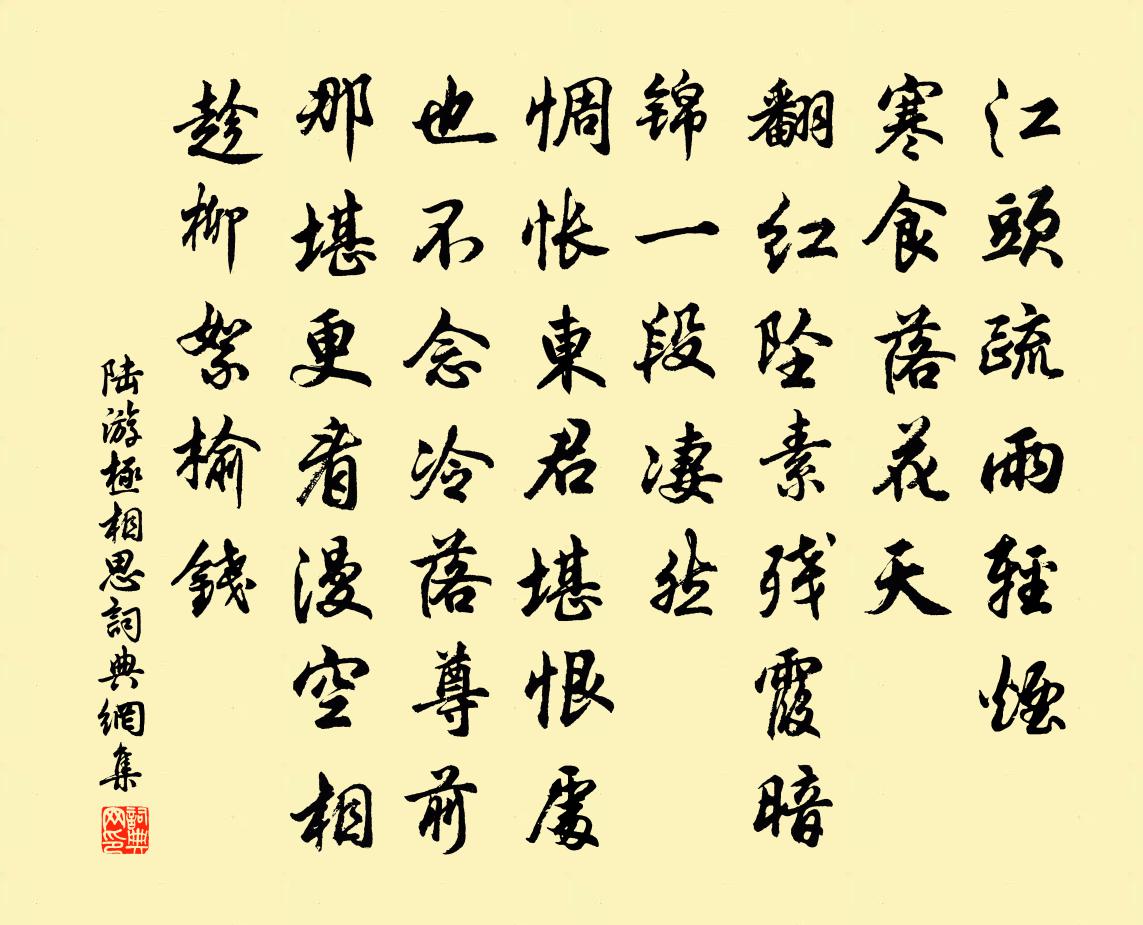 江頭疏雨輕煙
寒食落花天
翻红坠素残霞暗
锦一段凄然
惆怅東君堪恨處
也不念冷落尊前
那堪更看漫空相
趁柳絮榆錢
陆游極相思詞典網集
詞典网印